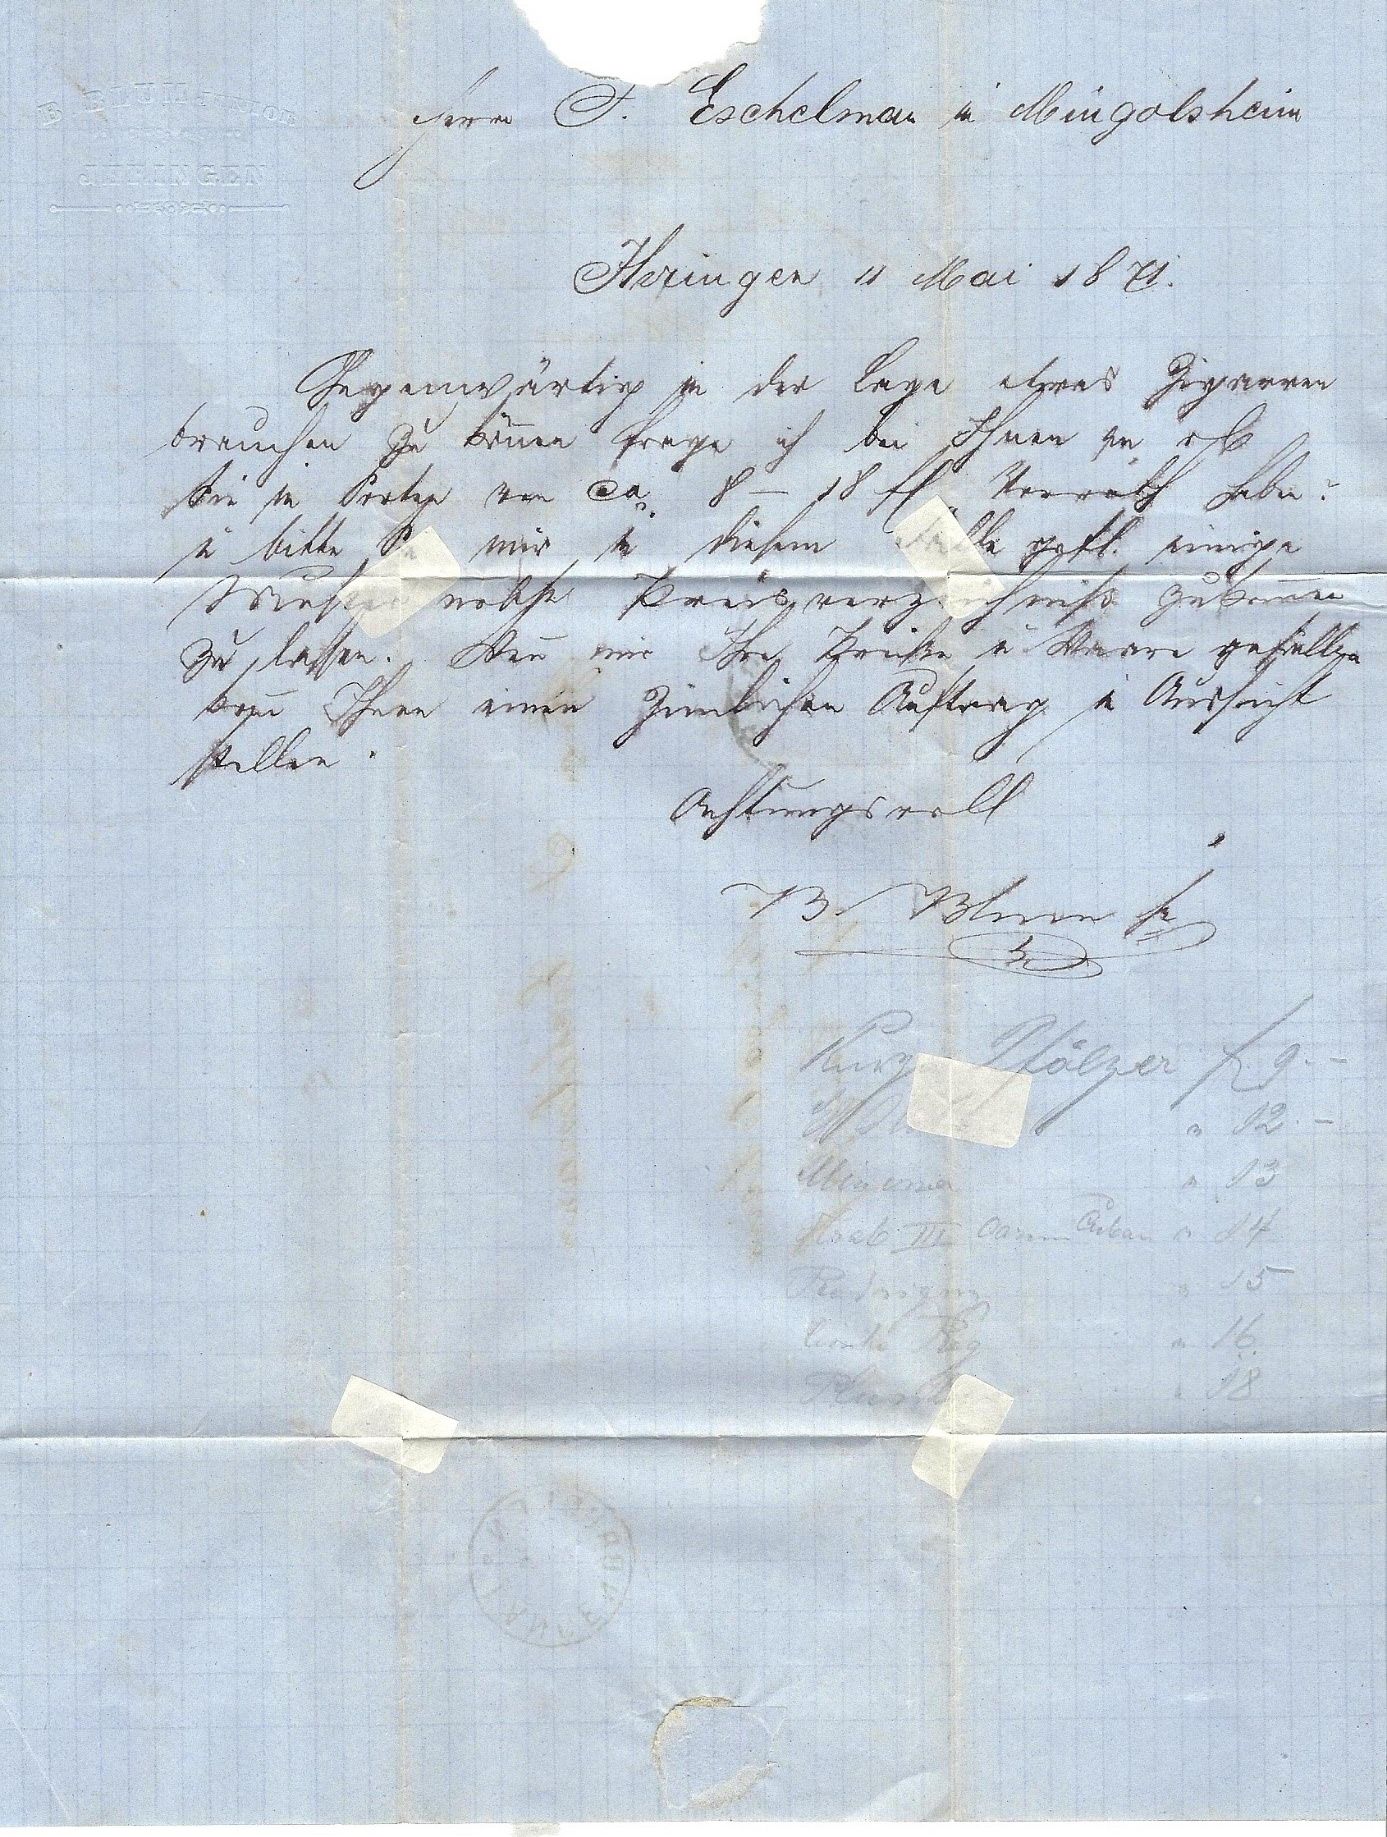 B. BLUM SENIOR
JHRINGEN
Herrn F. Eschelman in Mingolsheim
Jhringen 11 Mai 1871.
Gegenwärtig in der Lage etwas Zigarren
brauchen zu können frage ich bei Ihnen an ob
Sie in Sorten von ca. 8 – 18 fl Vorrath haben?
u bitte Sie mir in diesem Falle gefl. einige
Muster nebst Preisverzeichniss zukommen
zu lassen. Wenn mir Ihre Preise u Waare gefallen
kann Ihnen einen ziemlichen Auftrag in Aussicht
stellen.
Achtungsvoll
B. Blum sr
Pfälzer fl 9.–
" 12.–
Minerva " 13
III " 14
" 15
" 16
" 18